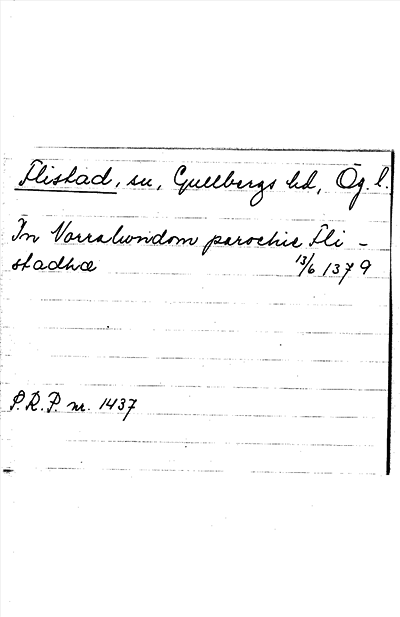 Flistad, sn, Gullbergs hd, Ög. l.
In Norralwndom parochie Fli-
stadhæ 13/6 1379
P.R.P. nr. 1437